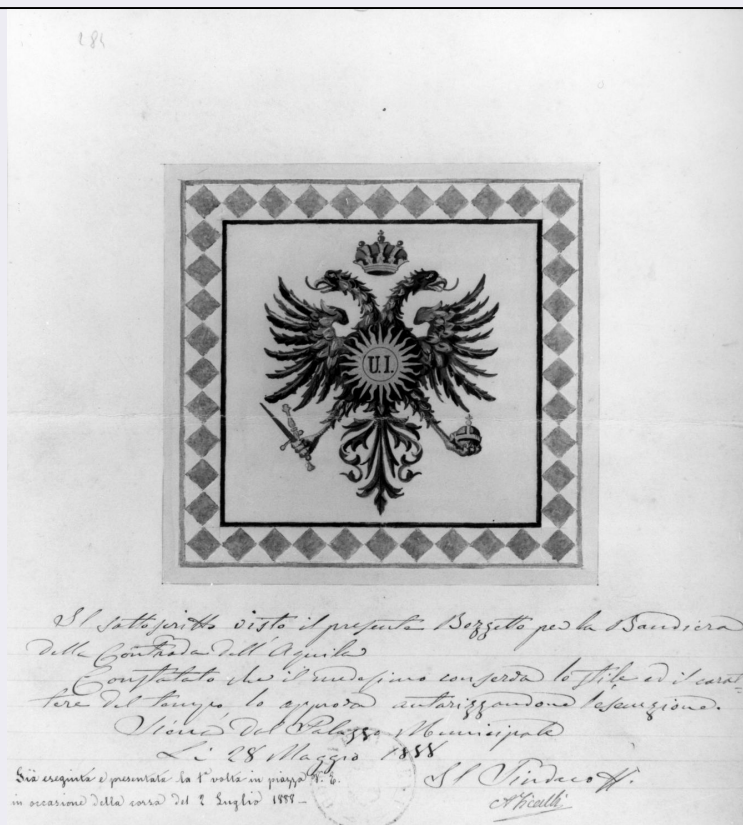 284
U.I.
Il sottoscritto visto il presente Bozzetto per la Bandiera
della Contrada dell'Aquila
Constatato che il medesimo conserva lo stile ed il carat=
tere del tempo lo approva autorizzandone l'esecuzione.
Siena dal Palazzo Municipale
Li 28 Maggio 1888
Il Sindaco ff.
Già eseguita e presentata la 1ª volta in piazza V. E.
in occasione della corsa del 2 Luglio 1888 —